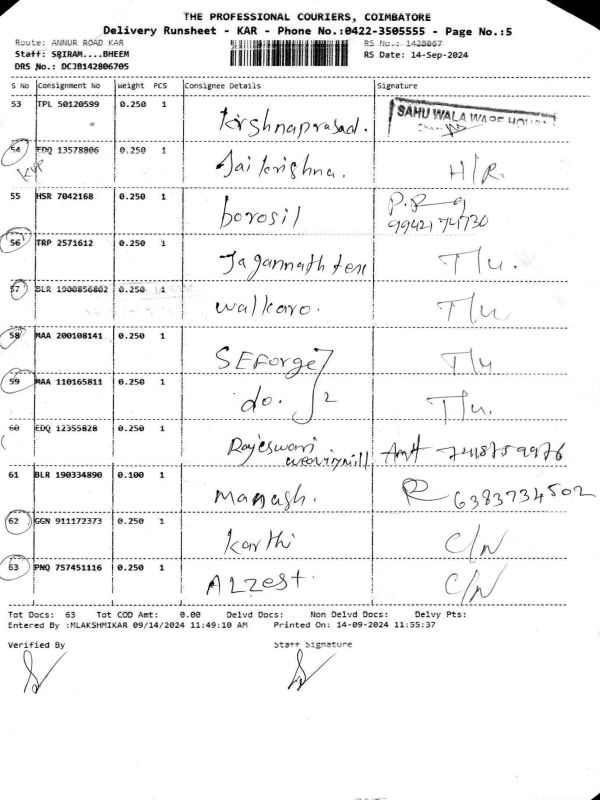 THE PROFESSIONAL COURIERS, COIMBATORE
Delivery Runsheet - KAR - Phone No.:0422-3505555 - Page No.:5
Route: ANNUR ROAD KAR RS No.: 1428067
Staff: SRIRAM....BHEEM RS Date: 14-Sep-2024
DRS No.: DCJB142806705
S No Consignment No Weight PCS Consignee Details Signature
53 TPL 50120599 0.250 1 Krishnaprasad. SAHU WALA WARE HOU
54 EDQ 13578806 0.250 1 Jai krishna. H/R.
55 HSR 7042168 0.250 1 borosil
9942174730
56 TRP 2571612 0.250 1 Jagannath tex T/u.
57 BLR 1900856802 0.250 1 walkaro. T/u
58 MAA 200108141 0.250 1 SEForge T/u
59 MAA 110165811 0.250 1 do. 2 T/u.
60 EDQ 12355828 0.250 1 Rajeswari weavingmill Amt
61 BLR 190334890 0.100 1 Manash. R 6383734502
62 GGN 911172373 0.250 1 Karthi C/N
63 PNQ 757451116 0.250 1 ALZest. C/N
Tot Docs: 63 Tot COD Amt: 0.00 Delvd Docs: Non Delvd Docs: Delvy Pts:
Entered By :MLAKSHMIKAR 09/14/2024 11:49:10 AM Printed On: 14-09-2024 11:55:37
Verified By Staff Signature